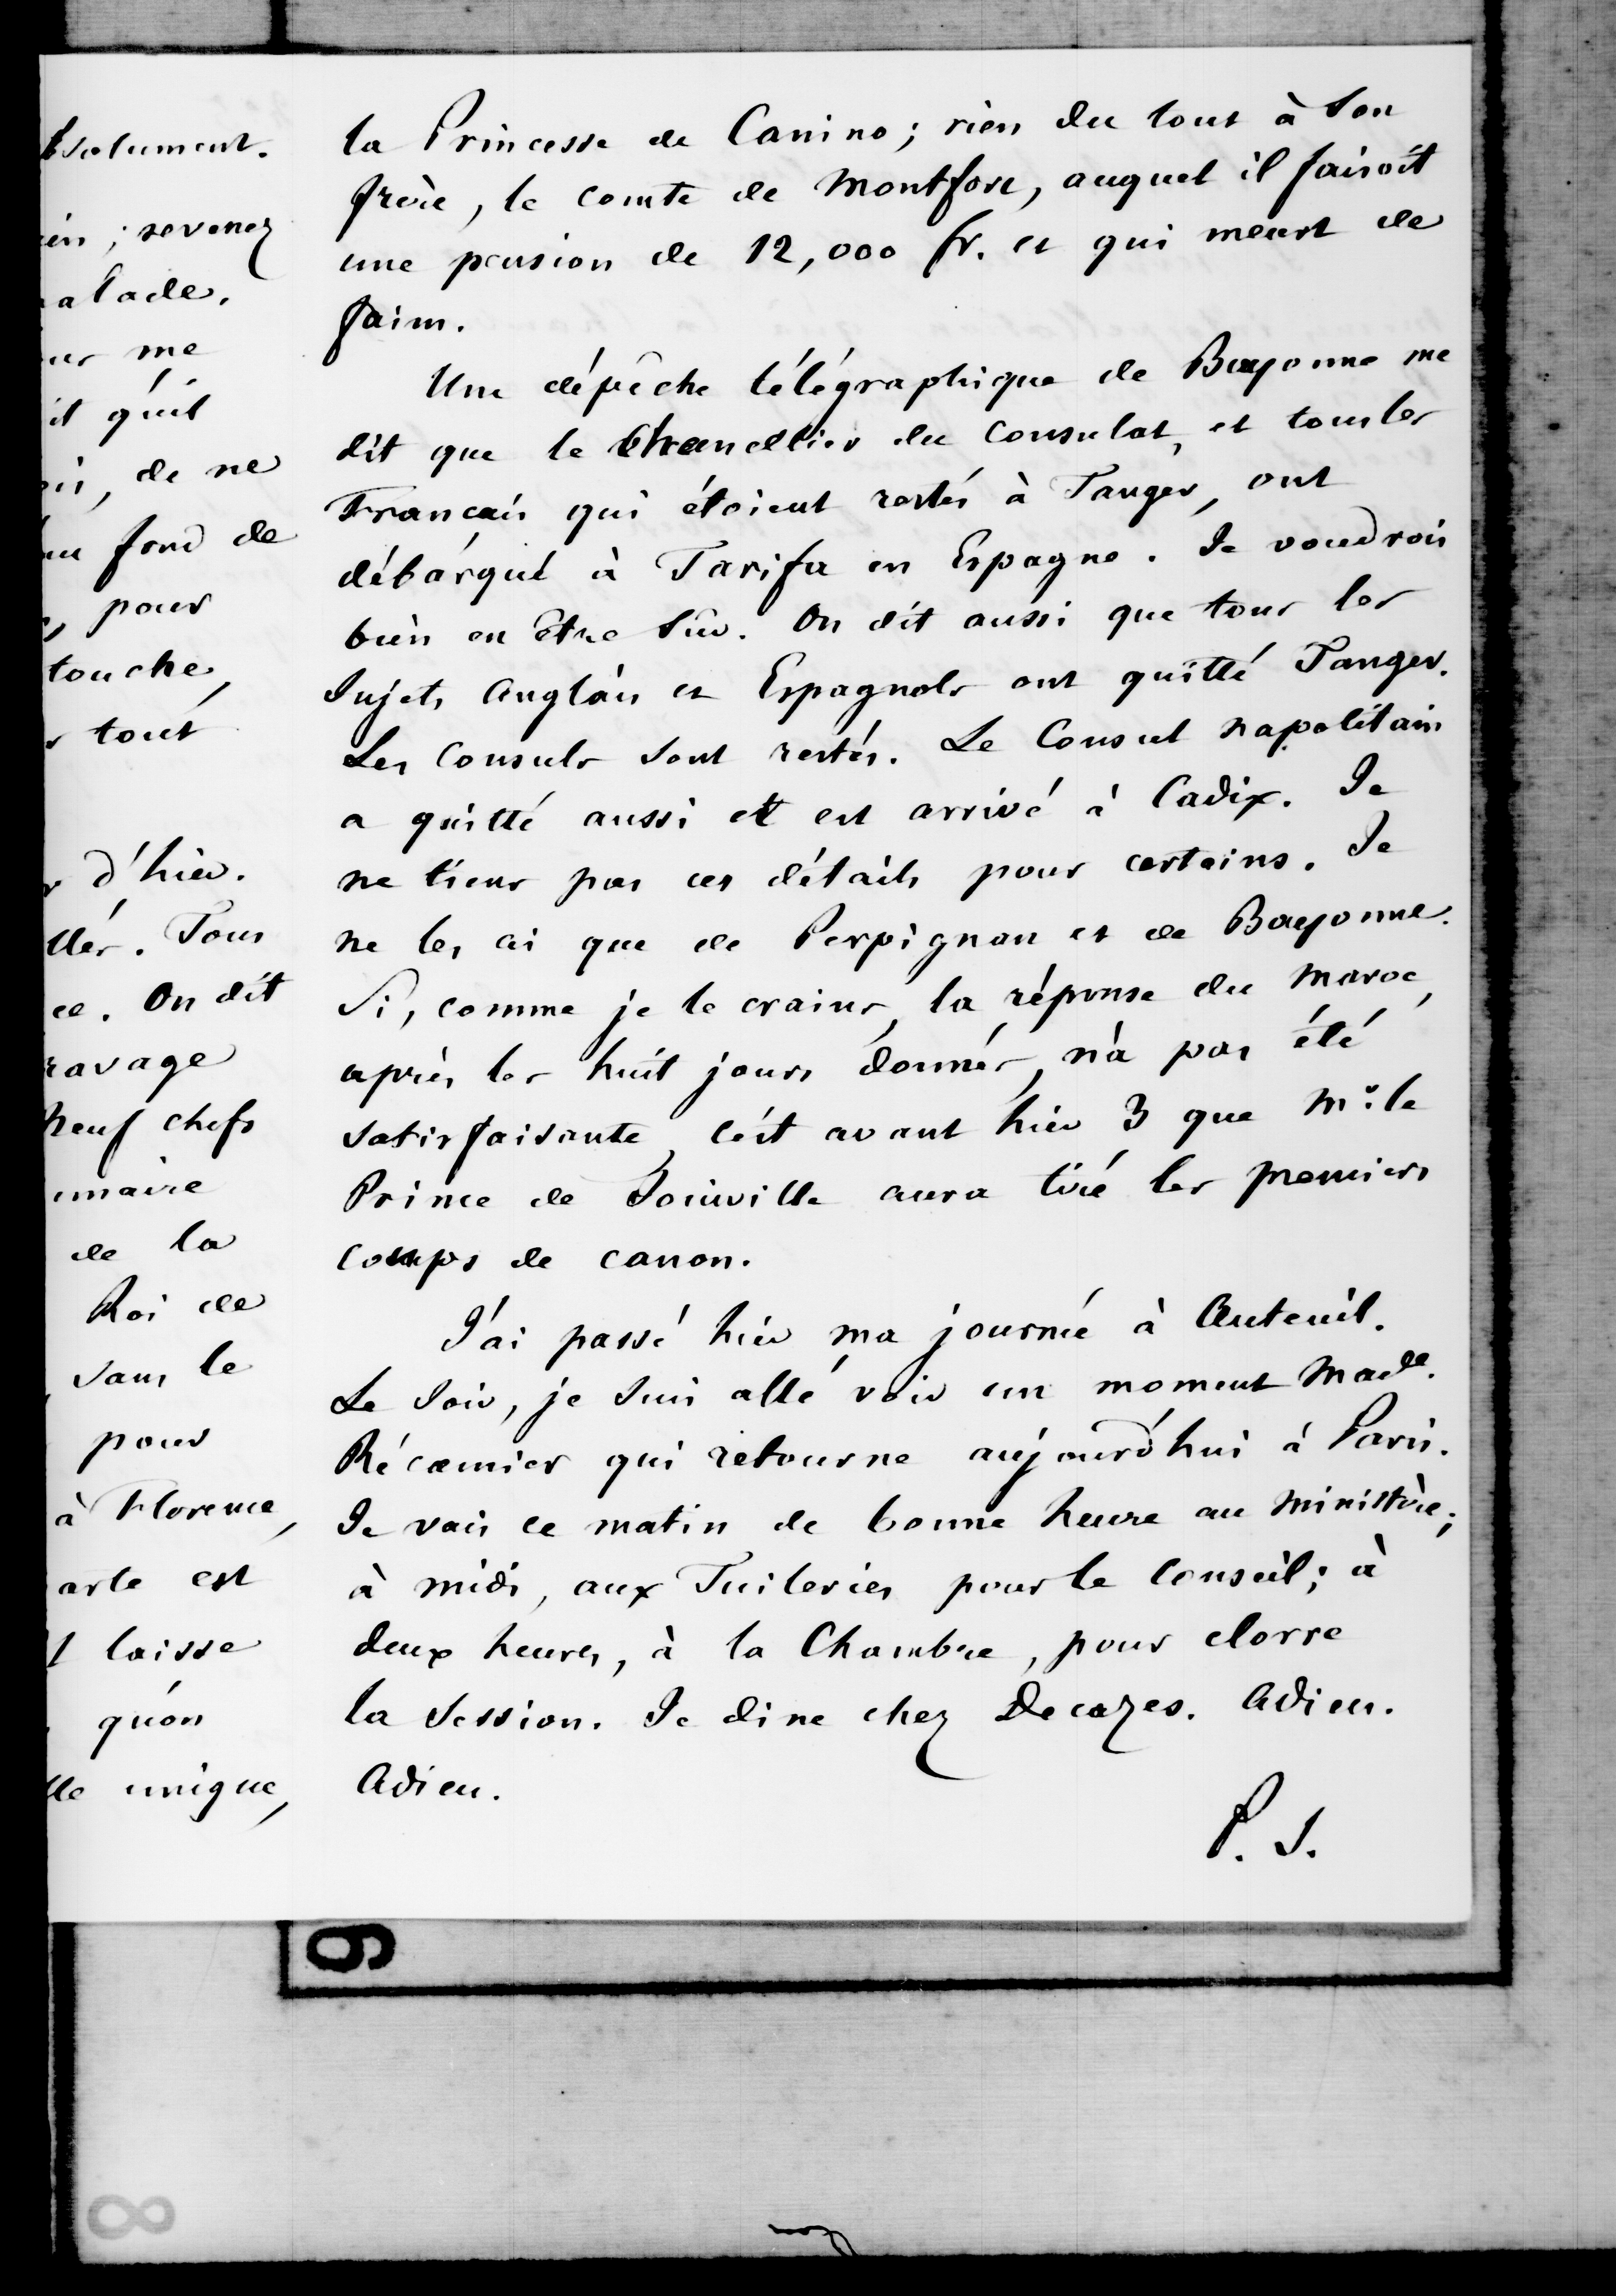 bsolument.
ien ; revenez
alade.
us me
it qu'il
ois, de ne
au fond de
, pour
touche,
s tout
r d'hier.
llés. Tous
ce. On dit
ravage
neuf chefs
imaire
de la
Roi de
sans le
pour
à Florence,
arte est
laisse
qu'on
lle unique,
la Princesse de Canino ; rien du tout à son
frère, le comte de Montfort, auquel il faisoit
une pension de 12,000 fr. et qui meurt de
faim.
Une dépêche télégraphique de Bayonne me
dit que le Chancellier du Consulat, et tous les
Français qui étoient restés à Tanger, ont
débarqué à Tarifa en Espagne. Je voudrois
bien en être sûr. On dit aussi que tous les
sujets Anglais et Espagnols ont quitté Tanger.
Les Consuls sont restés. Le Consul napolitain
a quitté aussi et est arrivé à Cadix. Je
ne tiens pas ces détails pour certains. Je
ne les ai que de Perpignan et de Bayonne.
Si, comme je le crains, la réponse du Maroc,
après les huit jours donnés, n'a pas été
satisfaisante, c'est avant hier 3 que Mr. le
Prince de Joinville aura tiré les premiers
coups de canon.
J'ai passé hier ma journée à Auteuil.
Le soir, je suis allé voir un moment Made.
Récamier qui retourne aujourd'hui à Paris.
Je vais ce matin de bonne heure au Ministère ;
à midi, aux Tuileries pour le Conseil ; à
deux heures, à la Chambre, pour clorre
la session. Je dine chez Decazes. Adieu.
Adieu.
P. S.
9
8